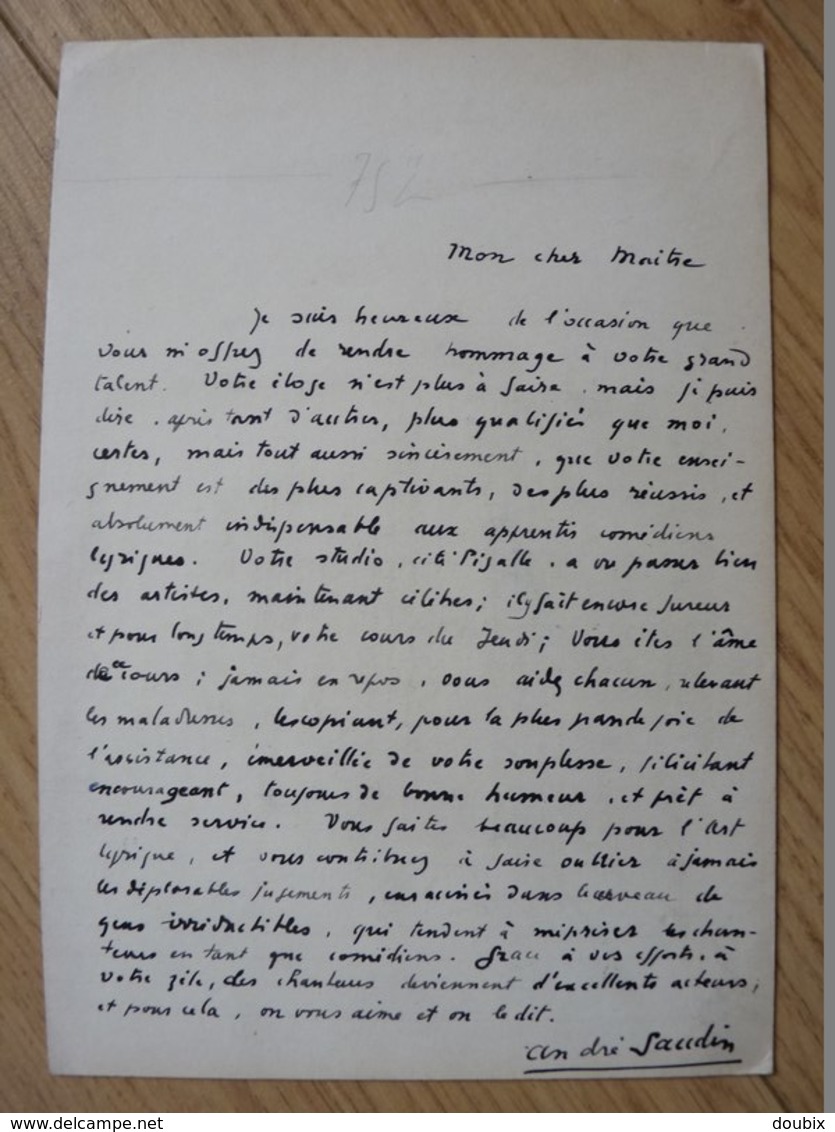 752
Mon cher Maître
Je suis heureux de l'occasion que
vous m'offrez de rendre hommage à votre grand
talent. Votre éloge n'est plus à faire, mais je puis
dire, après tant d'autres, plus qualifiés que moi,
certes, mais tout aussi sincèrement, que votre ensei-
gnement est des plus captivants, des plus réussis, et
absolument indispensable aux apprentis comédiens
lyriques. Votre studio, cité Pigalle, a vu passer bien
des artistes, maintenant célèbres; il y fait encore fureur
et pour longtemps, votre cours du Jeudi; Vous êtes l'âme
de ce cours; jamais en repos, vous aidez chacun, relevant
les maladresses, les copiant, pour la plus grande joie de
l'assistance, émerveillée de votre souplesse, félicitant
encourageant, toujours de bonne humeur, et prêt à
rendre service. Vous faites beaucoup pour l'Art
lyrique, et vous contribuez à faire oublier à jamais
les déplorables jugements, enracinés dans le cerveau de
gens irréductibles, qui tendent à mépriser les chan-
teurs en tant que comédiens. Grâce à vos efforts, à
votre zèle, des chanteurs deviennent d'excellents acteurs,
et pour cela, on vous aime et on le dit.
André Gaudin
www.delcampe.net
doubix